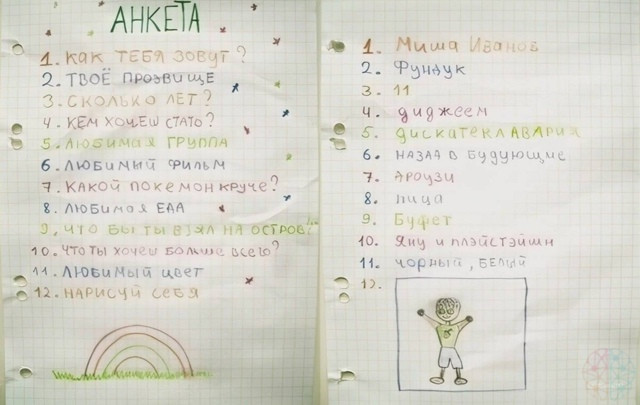 АНКЕТА
1. КАК ТЕБЯ ЗОВУТ?
2. ТВОЁ ПРОЗВИЩЕ
3. СКОЛЬКО ЛЕТ?
4. КЕМ ХОЧЕШ СТАТО?
5. ЛЮБИМАЯ ГРУППА
6. ЛЮБИМЫЙ ФИЛЬМ
7. КАКОЙ ПОКЕМОН КРУЧЕ?
8. ЛЮБИМАЯ ЕДА
9. ЧТО БЫ ТЫ ВЗЯЛ НА ОСТРОВ?
10. ЧТО ТЫ ХОЧЕШ БОЛЬШЕ ВСЕГО?
11. ЛЮБИМЫЙ ЦВЕТ
12. НАРИСУЙ СЕБЯ
1. Миша Иванов
2. Фундук
3. 11
4. диджеем
5. ДИСКАТЕКЛАВАРИЯ
6. НАЗАД В БУДУЮЩИЕ
7. АРОУЗИ
8. пица
9. Буфет
10. Яну и плэйстэйшн
11. чорный, БЕЛЫЙ
12.